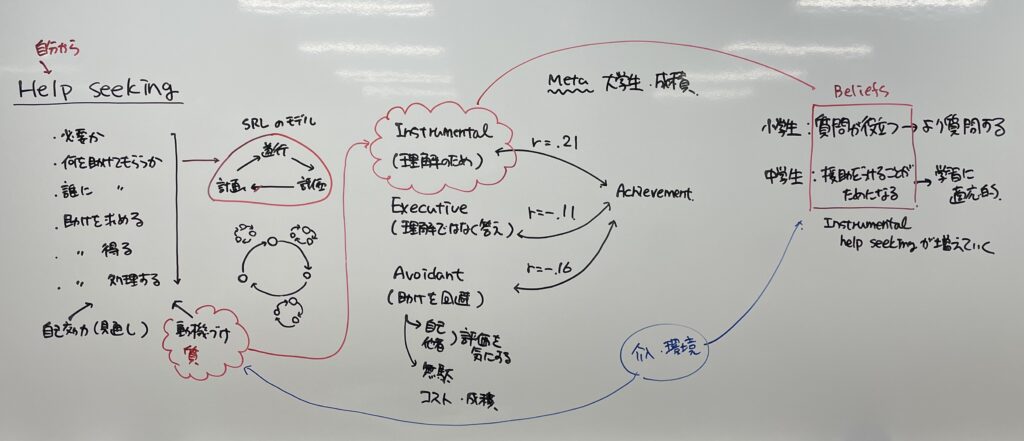 自分から
Help seeking
・必要か
・何を助けてもらうか
・誰に 〃
・助けを求める
・〃 得る
・〃 処理する
自己効力(見通し)
動機づけ
質
SRLのモデル
遂行
計画
評価
Instrumental
(理解のため)
Executive
(理解ではなく答え)
Avoidant
(助けを回避)
自己
他者
評価を
気にする
無駄
コスト・成績
Meta 大学生・成績
r=.21
r=-.11
r=-.16
Achievement
介入・環境
Beliefs
小学生:質問が役立つ→より質問する
中学生:援助をうけることが
ためになる
学習に
適応的
Instrumental
help seekingが増えていく